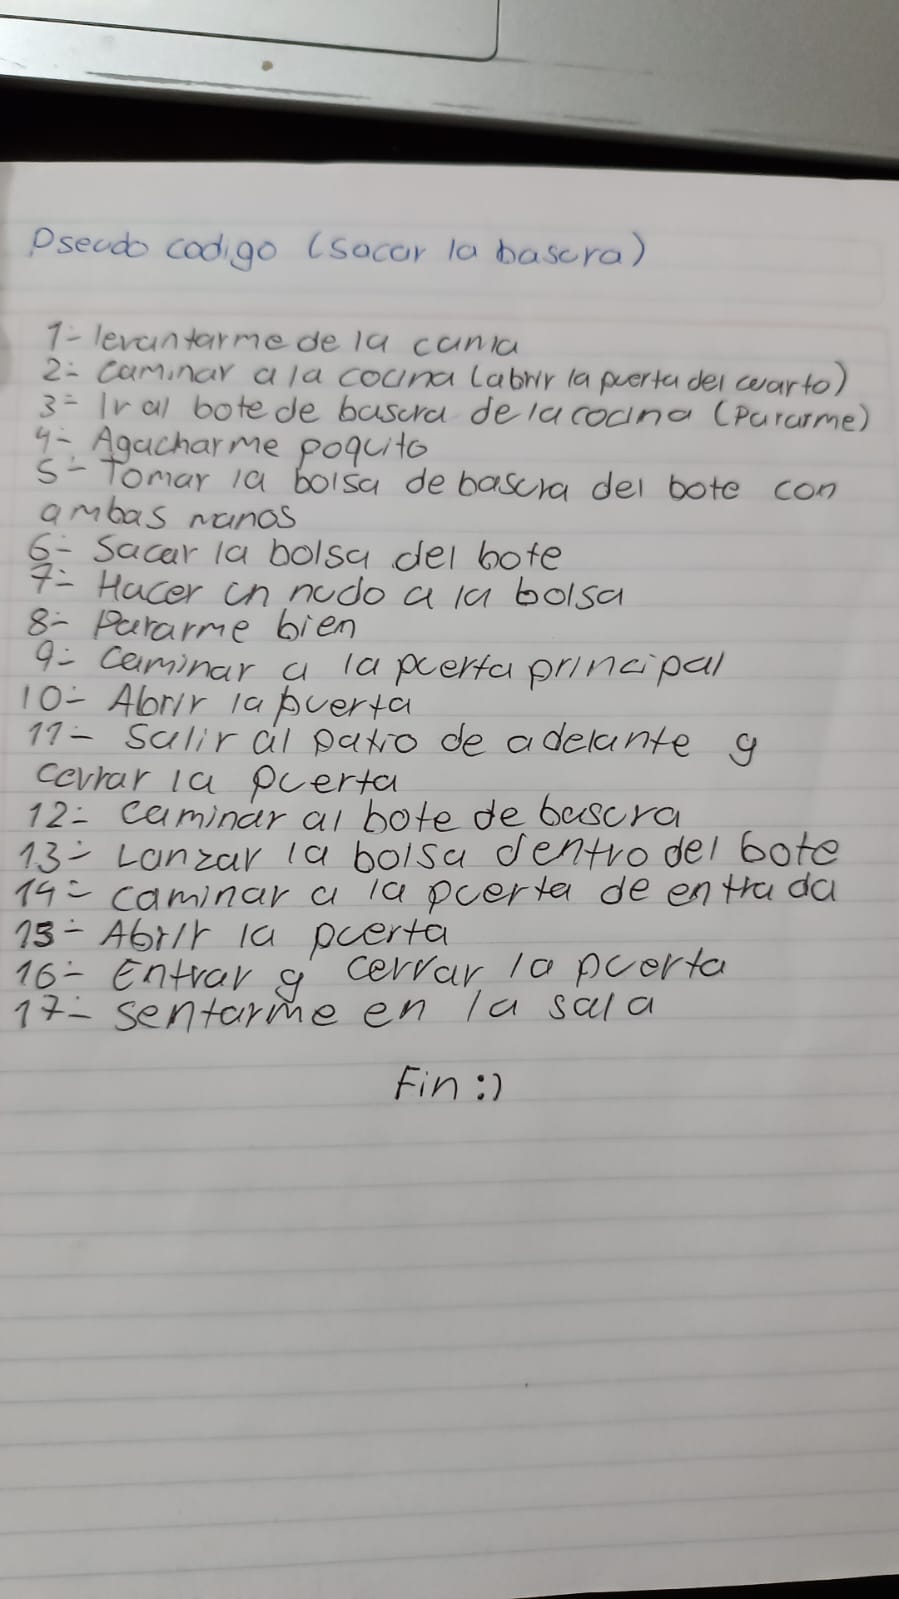 Pseudo codigo (sacar la basura)
1- levantarme de la cama
2- caminar a la cocina (abrir la puerta del cuarto)
3- Ir al bote de basura de la cocina (Pararme)
4- Agacharme poquito
5- Tomar la bolsa de basura del bote con
ambas manos
6- Sacar la bolsa del bote
7- Hacer un nudo a la bolsa
8- Pararme bien
9- Caminar a la puerta principal
10- Abrir la puerta
11- Salir al patio de adelante y
cerrar la puerta
12- Caminar al bote de basura
13- Lanzar la bolsa dentro del bote
14- caminar a la puerta de entrada
15- Abrir la puerta
16- Entrar y cerrar la puerta
17- sentarme en la sala
Fin :)